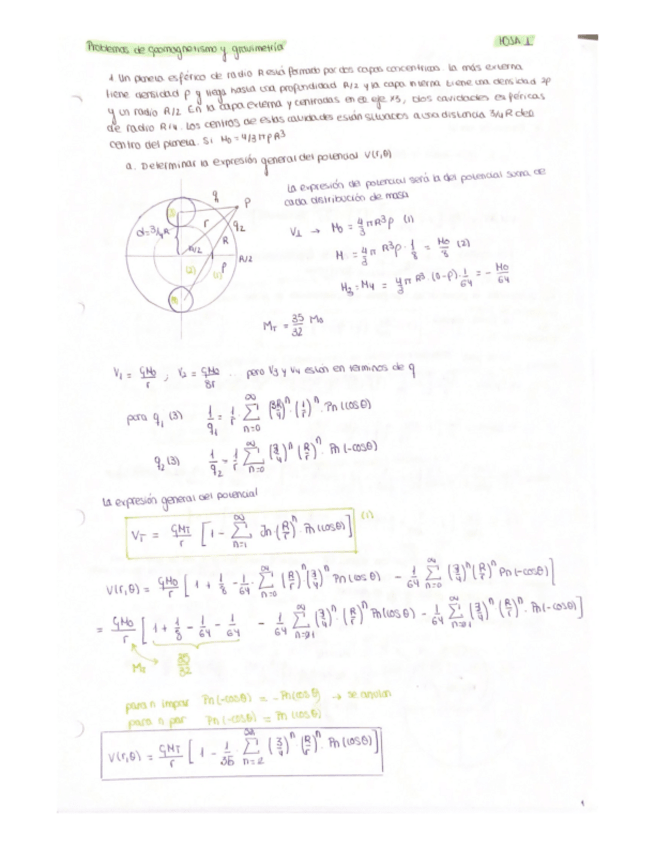 Problemas de geomagnetismo y gravimetría
HOJA 1
1. Un planeta esférico de radio R está formado por dos capas concéntricas. La más externa
tiene densidad ρ y llega hasta una profundidad R/2 y la capa interna tiene una densidad 2ρ
y un radio R/2. En la capa externa y centradas en el eje x3, dos cavidades esféricas
de radio R/4. Los centros de estas cavidades están situados a una distancia 3/4 R del
centro del planeta. Si M₀ = 4/3 π ρ R³
a. Determinar la expresión general del potencial V(r,θ)
La expresión del potencial será la del potencial suma de
cada distribución de masa
q
P
r
q2
d=3/4R
R
R/2
ρ
R/2
(2)
(1)
V1 → M₀ = 4/3 π R³ρ (1)
M = 4/3 π R³ρ · 1/8 = M₀/8 (2)
M3 = M4 = 4/3 π R³ · (0-ρ) · 1/64 = - M₀/64
M_T = 35/32 M₀
V1 = GM₀/r ; V2 = GM₀/8r .. pero V3 y V4 están en términos de q
para q1 (3) 1/q1 = 1/r · ∑_{n=0}^{∞} (3R/4)^n · (1/r)^n · Pn(cosθ)
q2 (3) 1/q2 = 1/r ∑_{n=0}^{∞} (3/4)^n (R/r)^n · Pn(-cosθ)
La expresión general del potencial
V_T = GM_T/r [1 - ∑_{n=1}^{∞} Jn (R/r)^n Pn(cosθ)] (1)
V(r,θ) = GM₀/r [1 + 1/8 - 1/64 · ∑_{n=0}^{∞} (R/r)^n (3/4)^n Pn(cosθ) - 1/64 ∑_{n=0}^{∞} (3/4)^n (R/r)^n Pn(-cosθ)]
= GM₀/r [1 + 1/8 - 1/64 - 1/64 - 1/64 ∑_{n=1}^{∞} (3/4)^n · (R/r)^n Pn(cosθ) - 1/64 ∑_{n=1}^{∞} (3/4)^n · (R/r)^n · Pn(-cosθ)]
35/32
para n impar Pn(-cosθ) = -Pn(cosθ) → se anulan
para n par Pn(-cosθ) = Pn(cosθ)
V(r,θ) = GM_T/r [1 - 1/35 · ∑_{n=2}^{∞} (3/4)^n · (R/r)^n · Pn(cosθ)]
1